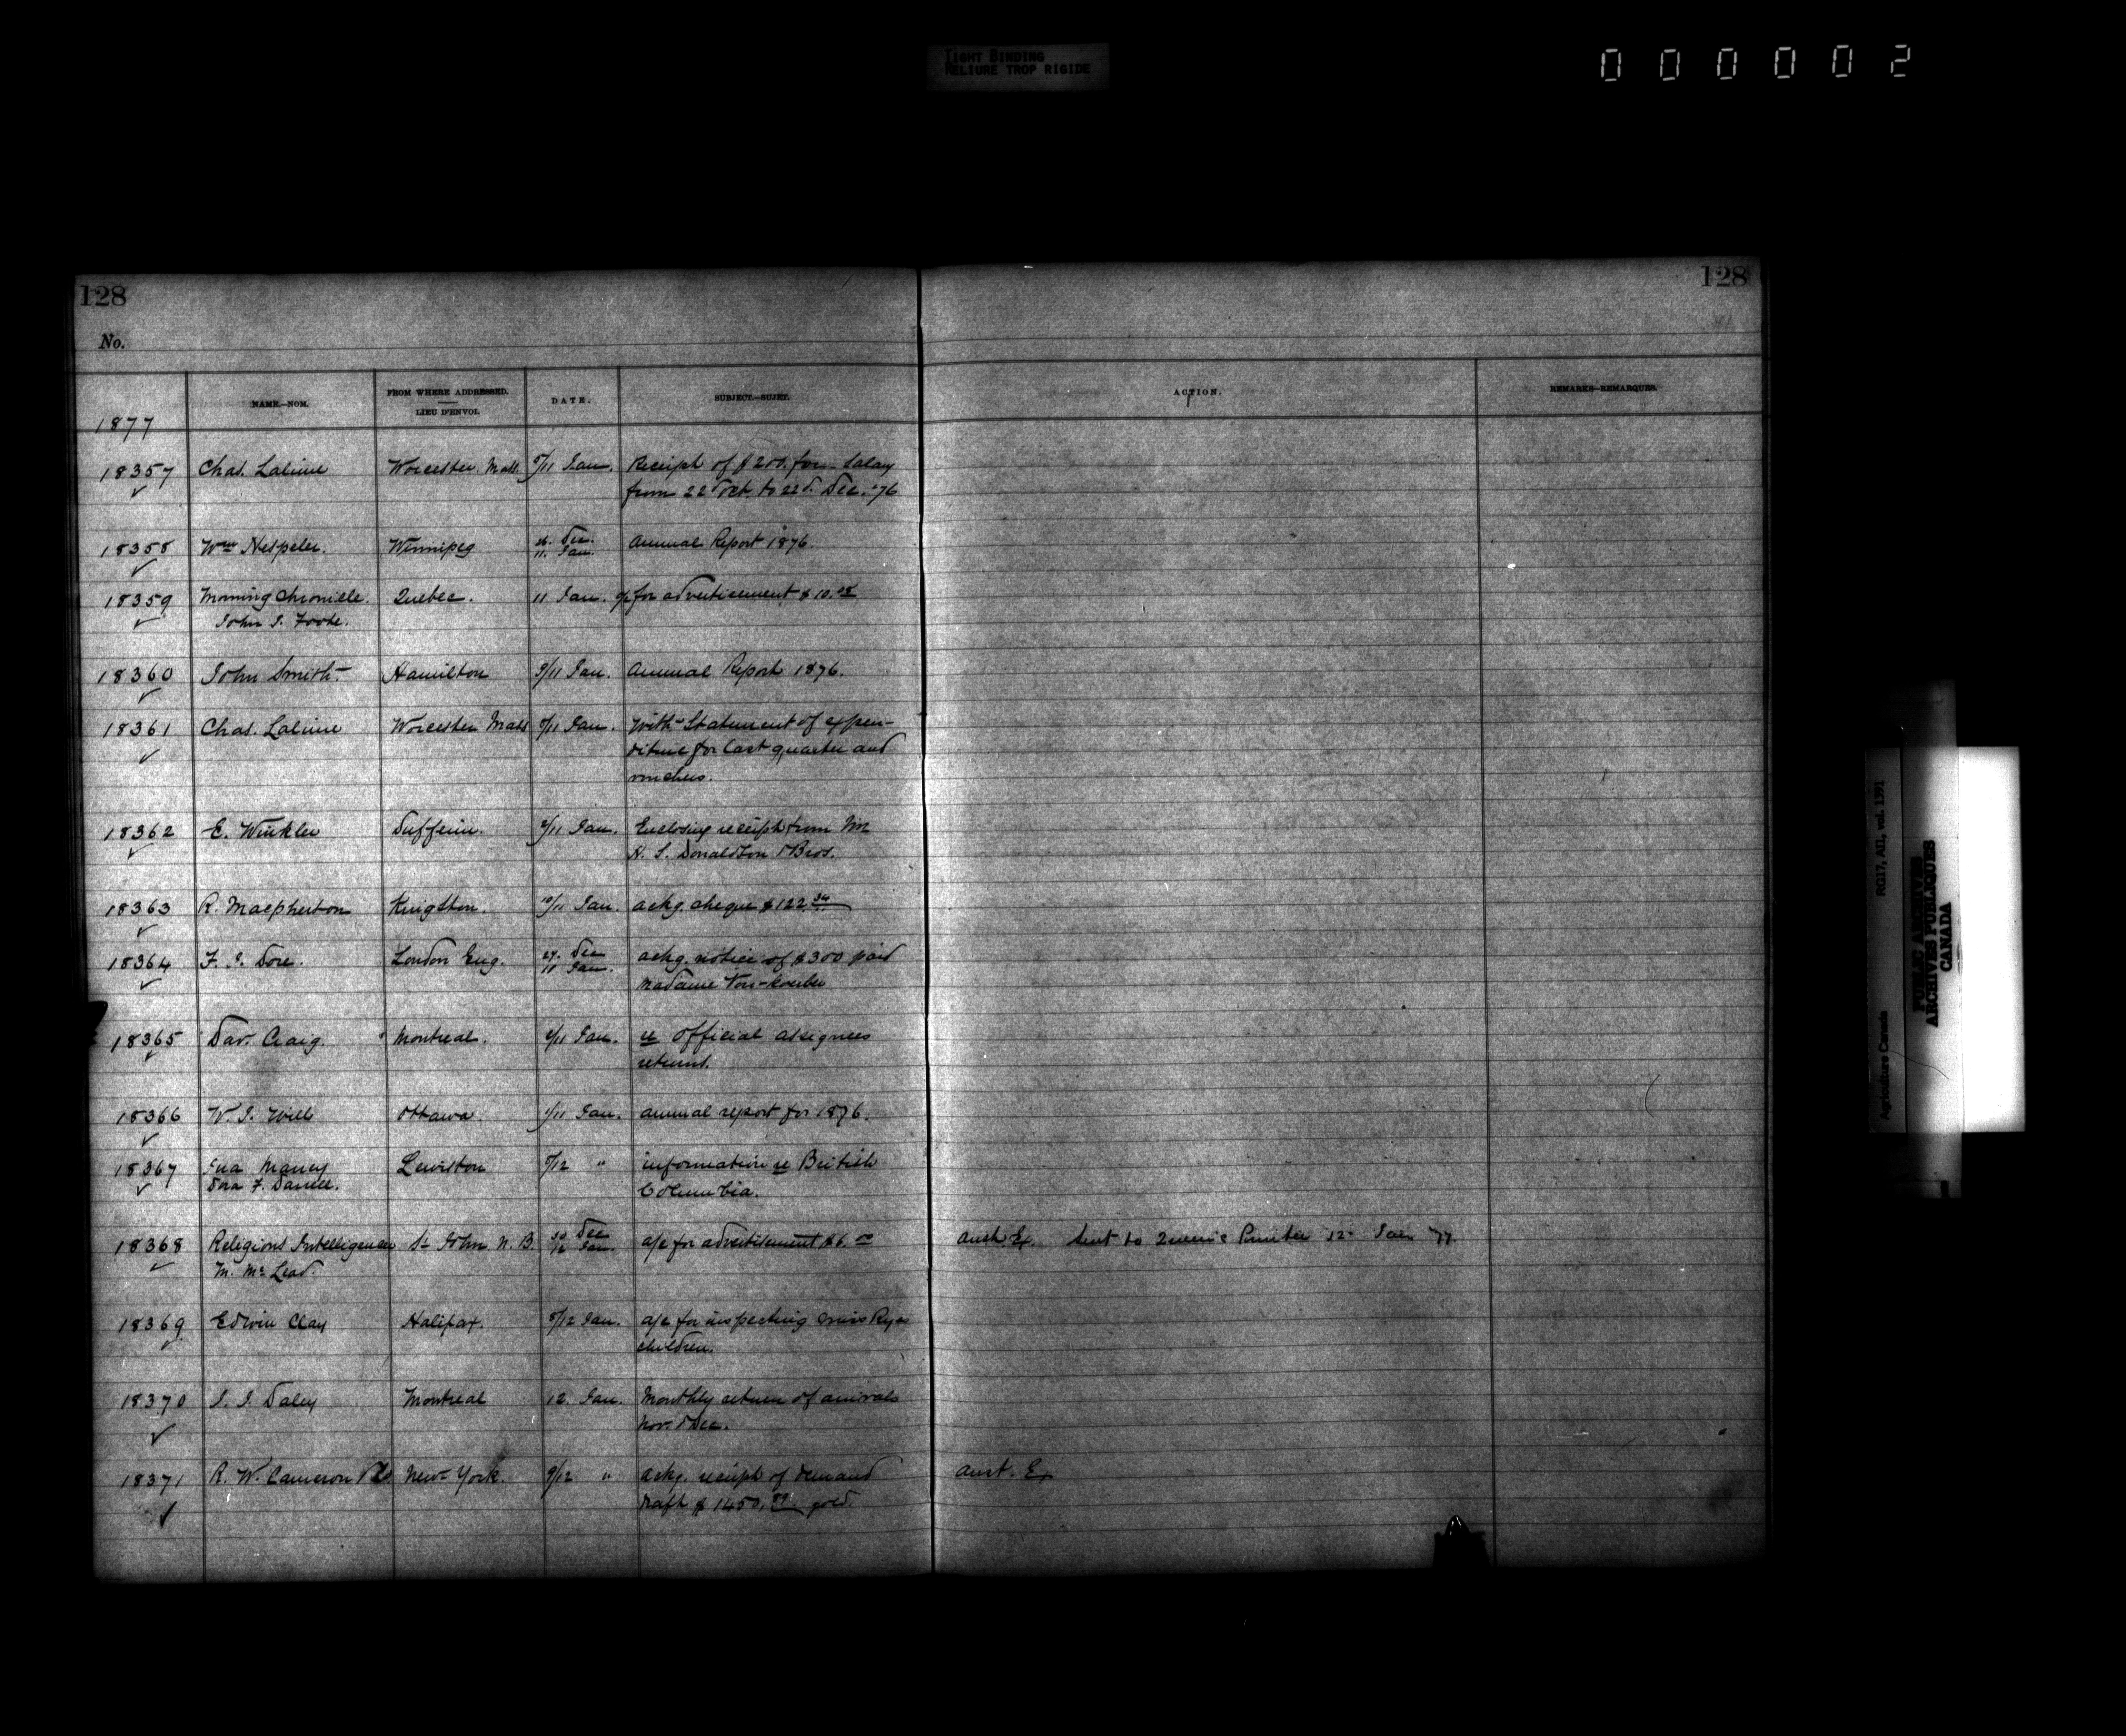 TIGHT BINDING
RELIURE TROP RIGIDE
000002
128
128
No.
NAME.—NOM.
FROM WHERE ADDRESSED.
LIEU D'ENVOI.
DATE.
SUBJECT.—SUJET.
ACTION.
REMARKS—REMARQUES.
1877
18357 Chas. Lalime Worcester. Mass. /11 Jan. Receipt of $200. for Salary
from 22d Oct. to 22d. Dec. '76
18358 Wm Hespeler. Winnipeg 26. Dec. Annual Report 1876.
11. Jan.
18359 Morning Chronicle. Quebec. 11 Jan. a/c for advertisement $10.
John J. Foote.
18360 John Smith Hamilton 9/11 Jan. Annual Report 1876.
18361 Chas. Lalime Worcester Mass /11 Jan. With Statement of expen-
diture for last quarter and
vouchers.
18362 E. Winkler Dufferin. 2/11 Jan. Enclosing receipt from
H. S. Donaldson & Bros.
18363 R. Macpherson Kingston. 10/11 Jan. ackg. cheque $122.34
18364 F. J. Dore. London Eng. 27. Dec ackg. notice of $300 paid
11 Jan. Madame Von-Koerber
18365 Dav. Craig. Montreal. /11 Jan. re Official assignees
returns.
18366 W. J. Wills Ottawa /11 Jan. annual report for 1876.
18367 Lewiston /12 " information re British
Dora F. Columbia.
18368 Religious Intelligencer St John N. B. 30 Dec a/c for advertisement $6.00 Sent to Queen's Printer 12 Jan '77.
12 Jan.
M. McLeod.
18369 Edwin Clay Halifax. 8/12 Jan. a/c for inspecting Miss Ryes
children.
18370 J. J. Daley Montreal 12. Jan. Monthly return of arrivals
Nov. & Dec.
18371 R. W. Cameron & Co. New York. 9/12 " ackg. receipt of demand
draft $1450. gold.
Agriculture Canada RG17, AII, vol. 1391
PUBLIC ARCHIVES
ARCHIVES PUBLIQUES
CANADA